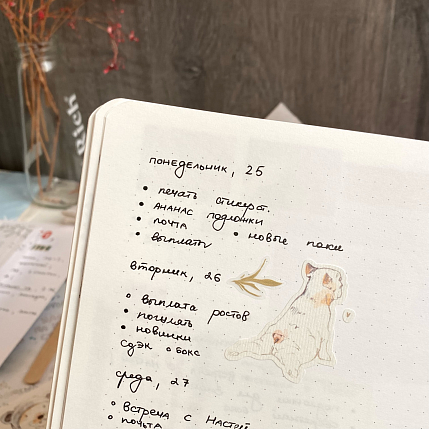 понедельник, 25
• печать стикерт.
• ананас подложки
• почта
• выплаты • новые паки
вторник, 26
• выплата ростов
• погулять
• новинки
сдэк + бокс
среда, 27
• встреча с Настей
• почта
Rich